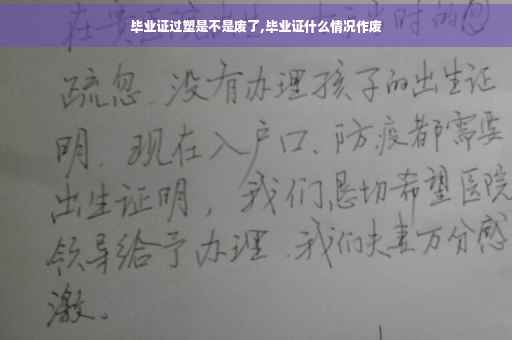 毕业证过塑是不是废了,毕业证什么情况作废
在贵 当时的
疏忽、没有办理孩子的出生证
明、现在入户口、防疫都需要
出生证明，我们恳切希望医院
领导给予办理、我们夫妻万分感
激。